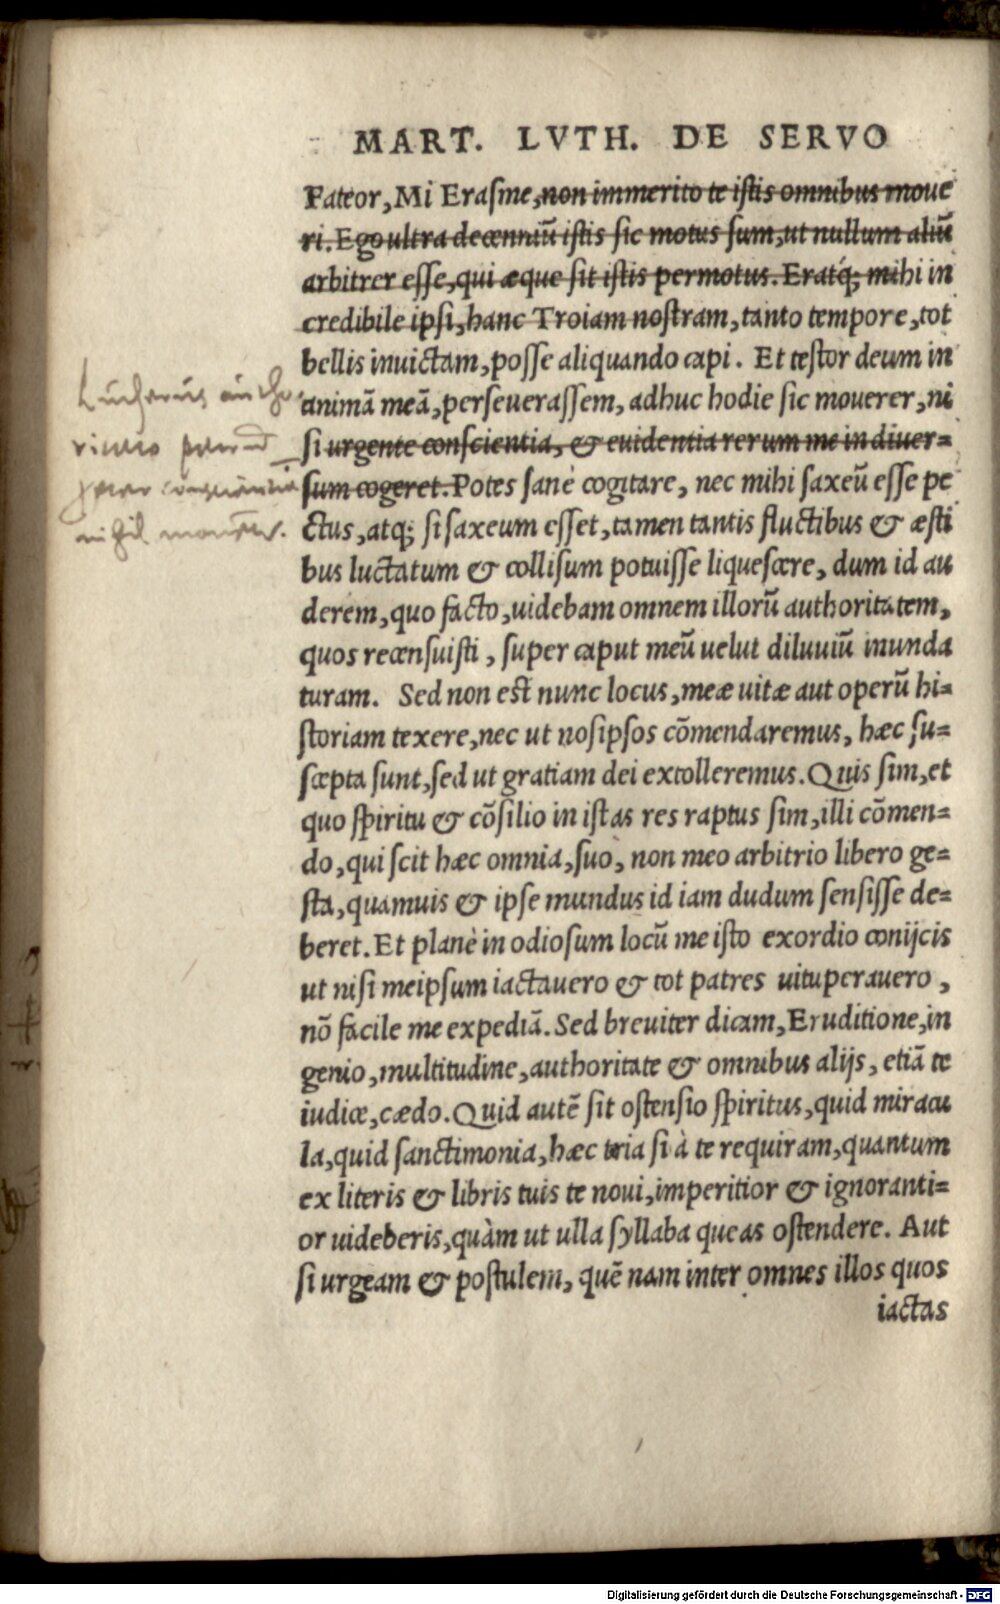 MART. LVTH. DE SERVO
Fateor, Mi Erasme, non immerito te istis omnibus moue
ri. Ego ultra decenniũ istis sic motus sum, ut nullum aliũ
arbitrer esse, qui æque sit istis permotus. Eratq́; mihi in
credibile ipsi, hanc Troiam nostram, tanto tempore, tot
bellis inuictam, posse aliquando capi. Et testor deum in
animã meã, perseuerassem, adhuc hodie sic mouerer, ni
si urgente conscientia, & euidentia rerum me in diuer=
sum cogeret. Potes sanè cogitare, nec mihi saxeũ esse pe
ctus, atq; si saxeum esset, tamen tantis fluctibus & æsti
bus luctatum & collisum potuisse liquescere, dum id au
derem, quo facto, uidebam omnem illorũ authoritatem,
quos recensuisti, super caput meũ uelut diluuiũ inunda
turam. Sed non est nunc locus, meæ uitæ aut operũ hi=
storiam texere, nec ut nosipsos cõmendaremus, hæc su=
scepta sunt, sed ut gratiam dei extolleremus. Quis sim, et
quo spiritu & cõsilio in istas res raptus sim, illi cõmen=
do, qui scit hæc omnia, suo, non meo arbitrio libero ge=
sta, quamuis & ipse mundus id iam dudum sensisse de=
beret. Et planè in odiosum locũ me isto exordio conijcis
ut nisi meipsum iactauero & tot patres uituperauero,
nõ facile me expediã. Sed breuiter dicam, Eruditione, in
genio, multitudine, authoritate & omnibus alijs, etiã te
iudice, cædo. Quid autẽ sit ostensio spiritus, quid miracu
la, quid sanctimonia, hæc tria si à te requiram, quantum
ex literis & libris tuis te noui, imperitior & ignoranti=
or uideberis, quàm ut ulla syllaba queas ostendere. Aut
si urgeam & postulem, quẽ nam inter omnes illos quos
iactas
Lutherus
nihil
Digitalisierung gefördert durch die Deutsche Forschungsgemeinschaft - DFG